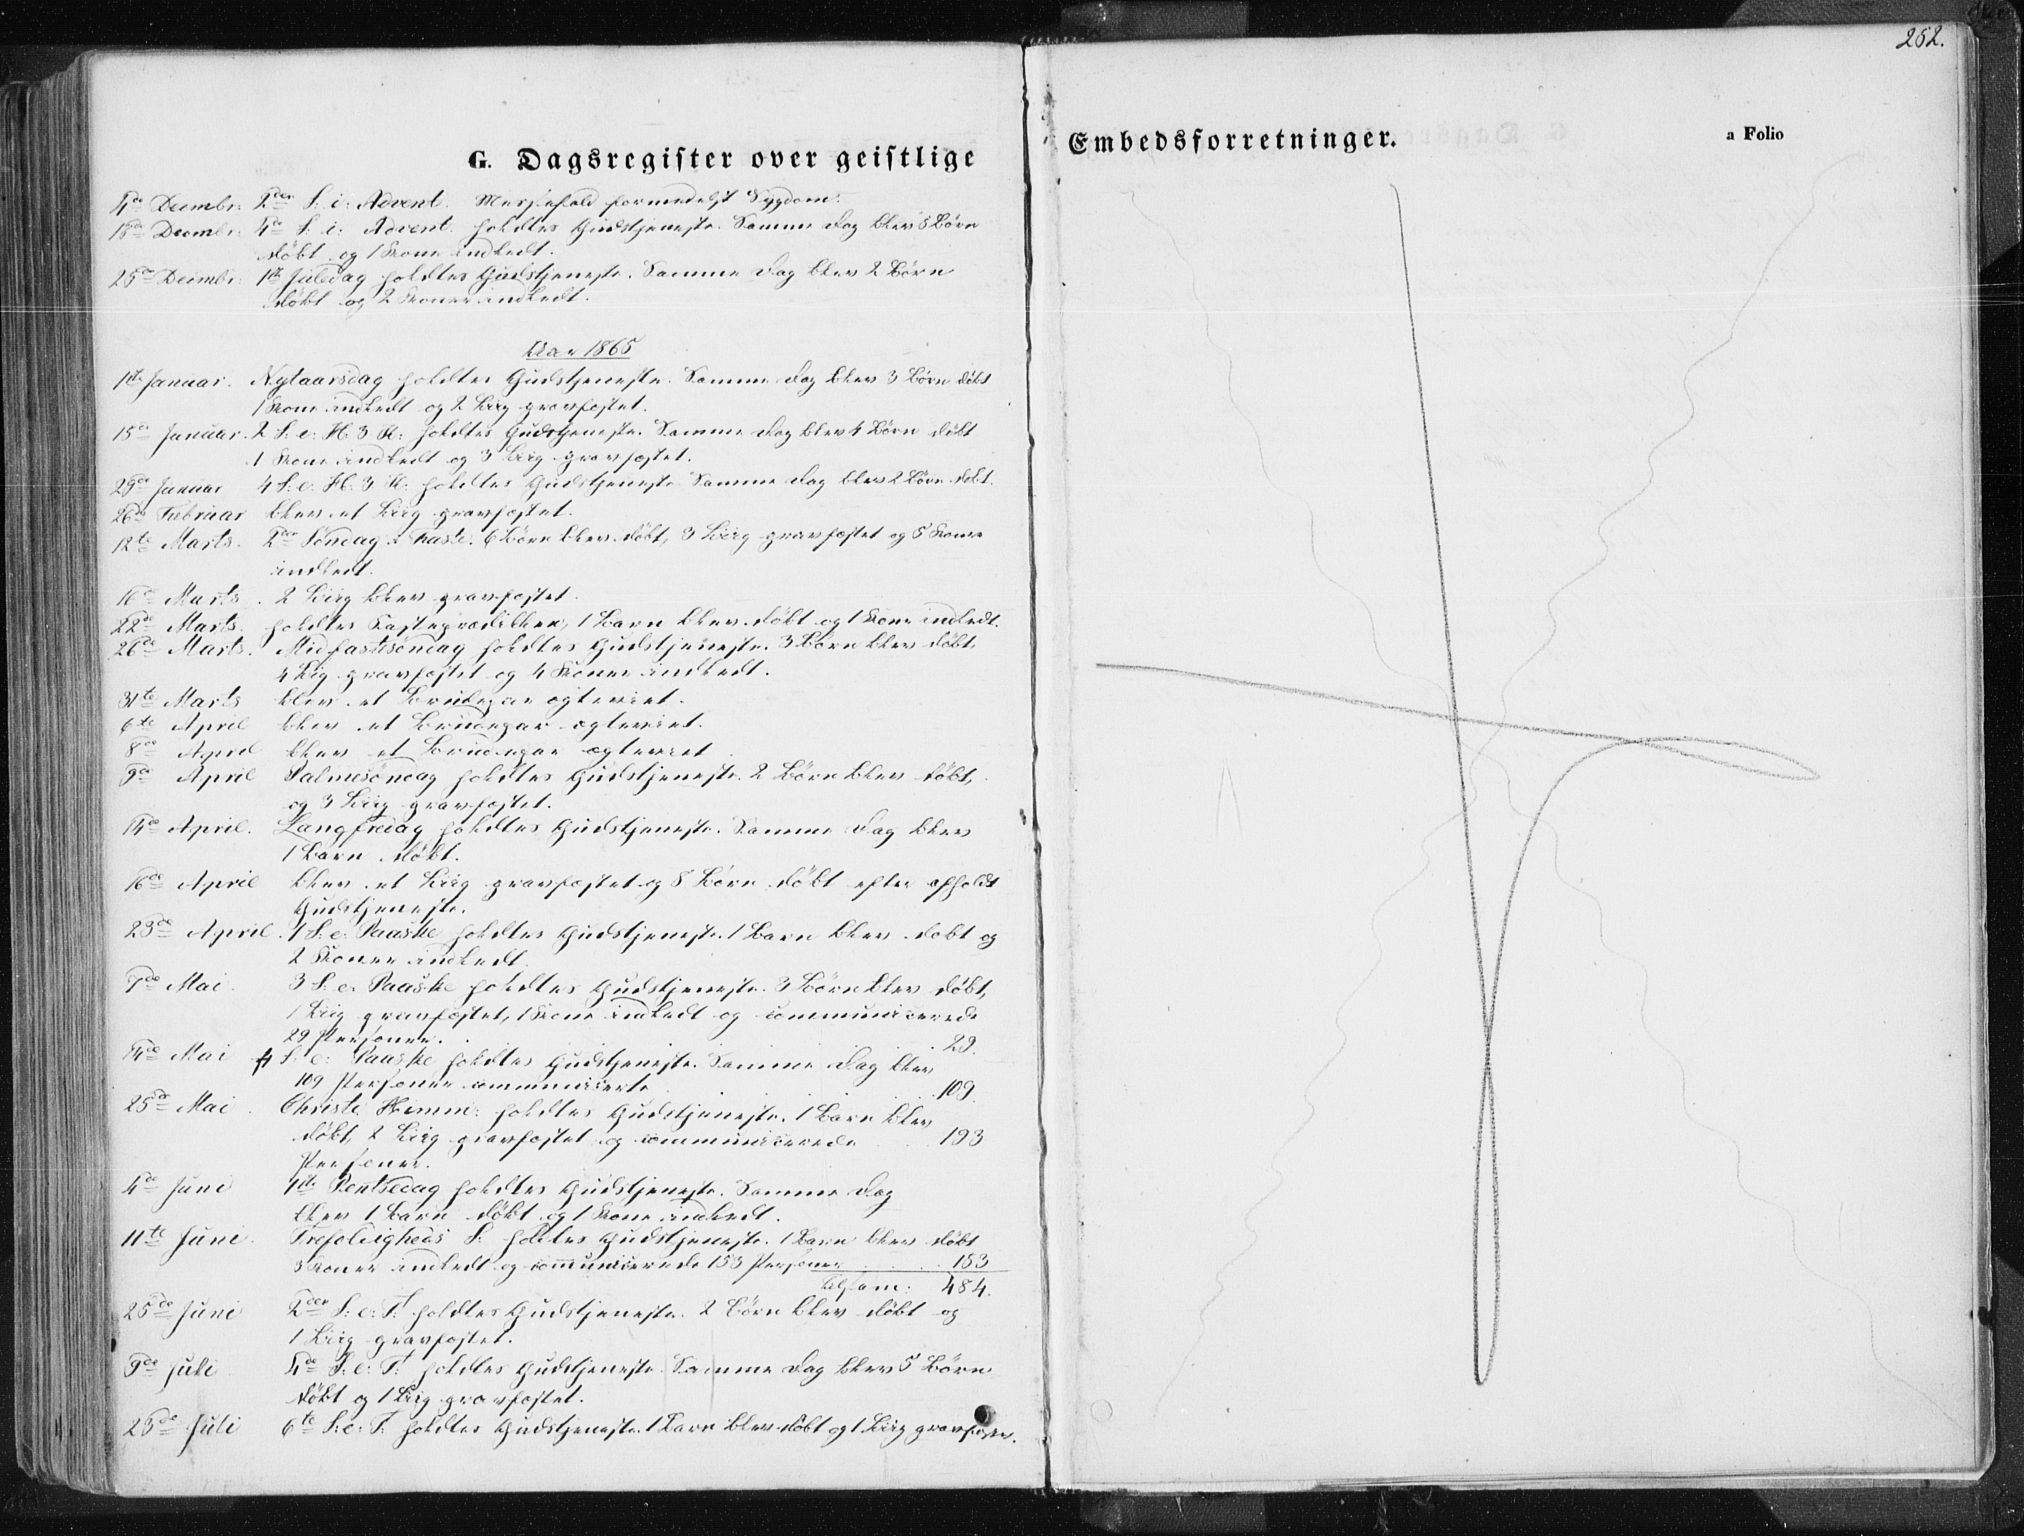 252.
G. Dagsregister over geistlige Embedsforretninger.
a Folio
4de Decembr: 2den S: i: Advent. Messefald formedelst Sygdom.
18de Decembr: 4de S: i: Advent. holdtes Gudstjeneste. Samme Dag blev 5 Børn
døbt og 1 Kone indledt.
25de Decembr: 1ste Juledag holdtes Gudstjeneste. Samme Dag blev 2 Børn
døbt og 2 Koner indledt.
Aar 1865
1ste Januar. Nytaarsdag holdtes Gudstjeneste. Samme Dag blev 3 Børn døbt
1 Kone indledt og 2 Liig gravfæstet.
15de Januar. 2 S: e: H. 3 K: holdtes Gudstjeneste. Samme Dag blev 4 Børn døbt
1 Kone indledt og 3 Liig gravfæstet.
29de Januar 4 S: e: H. 3 K: holdtes Gudstjeneste. Samme Dag blev 2 Børn døbt.
26de Februar blev et Liig gravfæstet.
12te Marts. 2den Søndag i Faste. 6 Børn blev døbt, 3 Liig gravfæstet og 5 Koner
indledt.
16de Marts. 2 Liig blev gravfæstet.
22de Marts. holdtes Fasteprædikken, 1 Barn blev døbt og 1 Kone indledt.
26de Marts. Midfastsøndag holdtes Gudstjeneste. 3 Børn blev døbt,
4 Liig gravfæstet og 4 Koner indledt.
31te Marts blev et Brudepar ægteviet.
6te April blev et Brudepar ægteviet.
8de April blev et Brudepar ægteviet
9de April Palmesøndag holdtes Gudstjeneste. 2 Børn blev døbt,
og 3 Liig gravfæstet.
14de April. Langfredag holdtes Gudstjeneste. Samme Dag blev
1 Barn døbt.
16de April blev et Liig gravfæstet og 8 Børn døbt efter afholdt
Gudstjeneste.
23de April. 1 S: e: Paaske holdtes Gudstjeneste. 1 Barn blev døbt og
2 Koner indledt.
7de Mai. 3 S: e: Paaske holdtes Gudstjeneste. 3 Børn blev døbt,
1 Liig gravfæstet, 1 Kone indledt og communicerede
29 Personer. 29.
14de Mai 4 S: e: Paaske holdtes Gudstjeneste. Samme Dag blev
109 Personer communicerte 109.
25de Mai. Christi Himm: holdtes Gudstjeneste. 1 Barn blev
døbt, 2 Liig gravfæstet og communicerede 193
Personer.
4de Juni 1ste Pentsedag holdtes Gudstjeneste. Samme Dag
blev 1 Barn døbt og 1 Kone indledt.
11te Juni. Trefoldigheds S: holdtes Gudstjeneste. 1 Barn blev døbt
3 Koner indledt og communicerede 153 Personer 153
tilsam: 484.
25de Juni 2den S: e: T: holdtes Gudstjeneste. 2 Børn blev døbt og
1 Liig gravfæstet.
9de Juli 4de S: e: T: holdtes Gudstjeneste. Samme Dag blev 5 Børn
døbt og 1 Liig gravfæstet.
23de Juli 6te S: e: T: holdtes Gudstjeneste. 1 Barn blev døbt og 1 Liig gravfæstet.